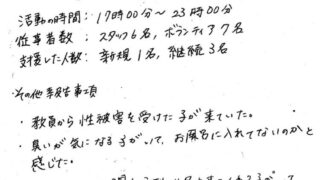 活動の時間： 17時00分〜23時00分
従事者数： スタッフ6名，ボランティア7名
支援した人数： 新規1名，継続3名
・その他報告事項
・教員から性被害を受けた子が来ていた。
・臭いが気になる子がいて，お風呂に入れてないのかと
感じた。